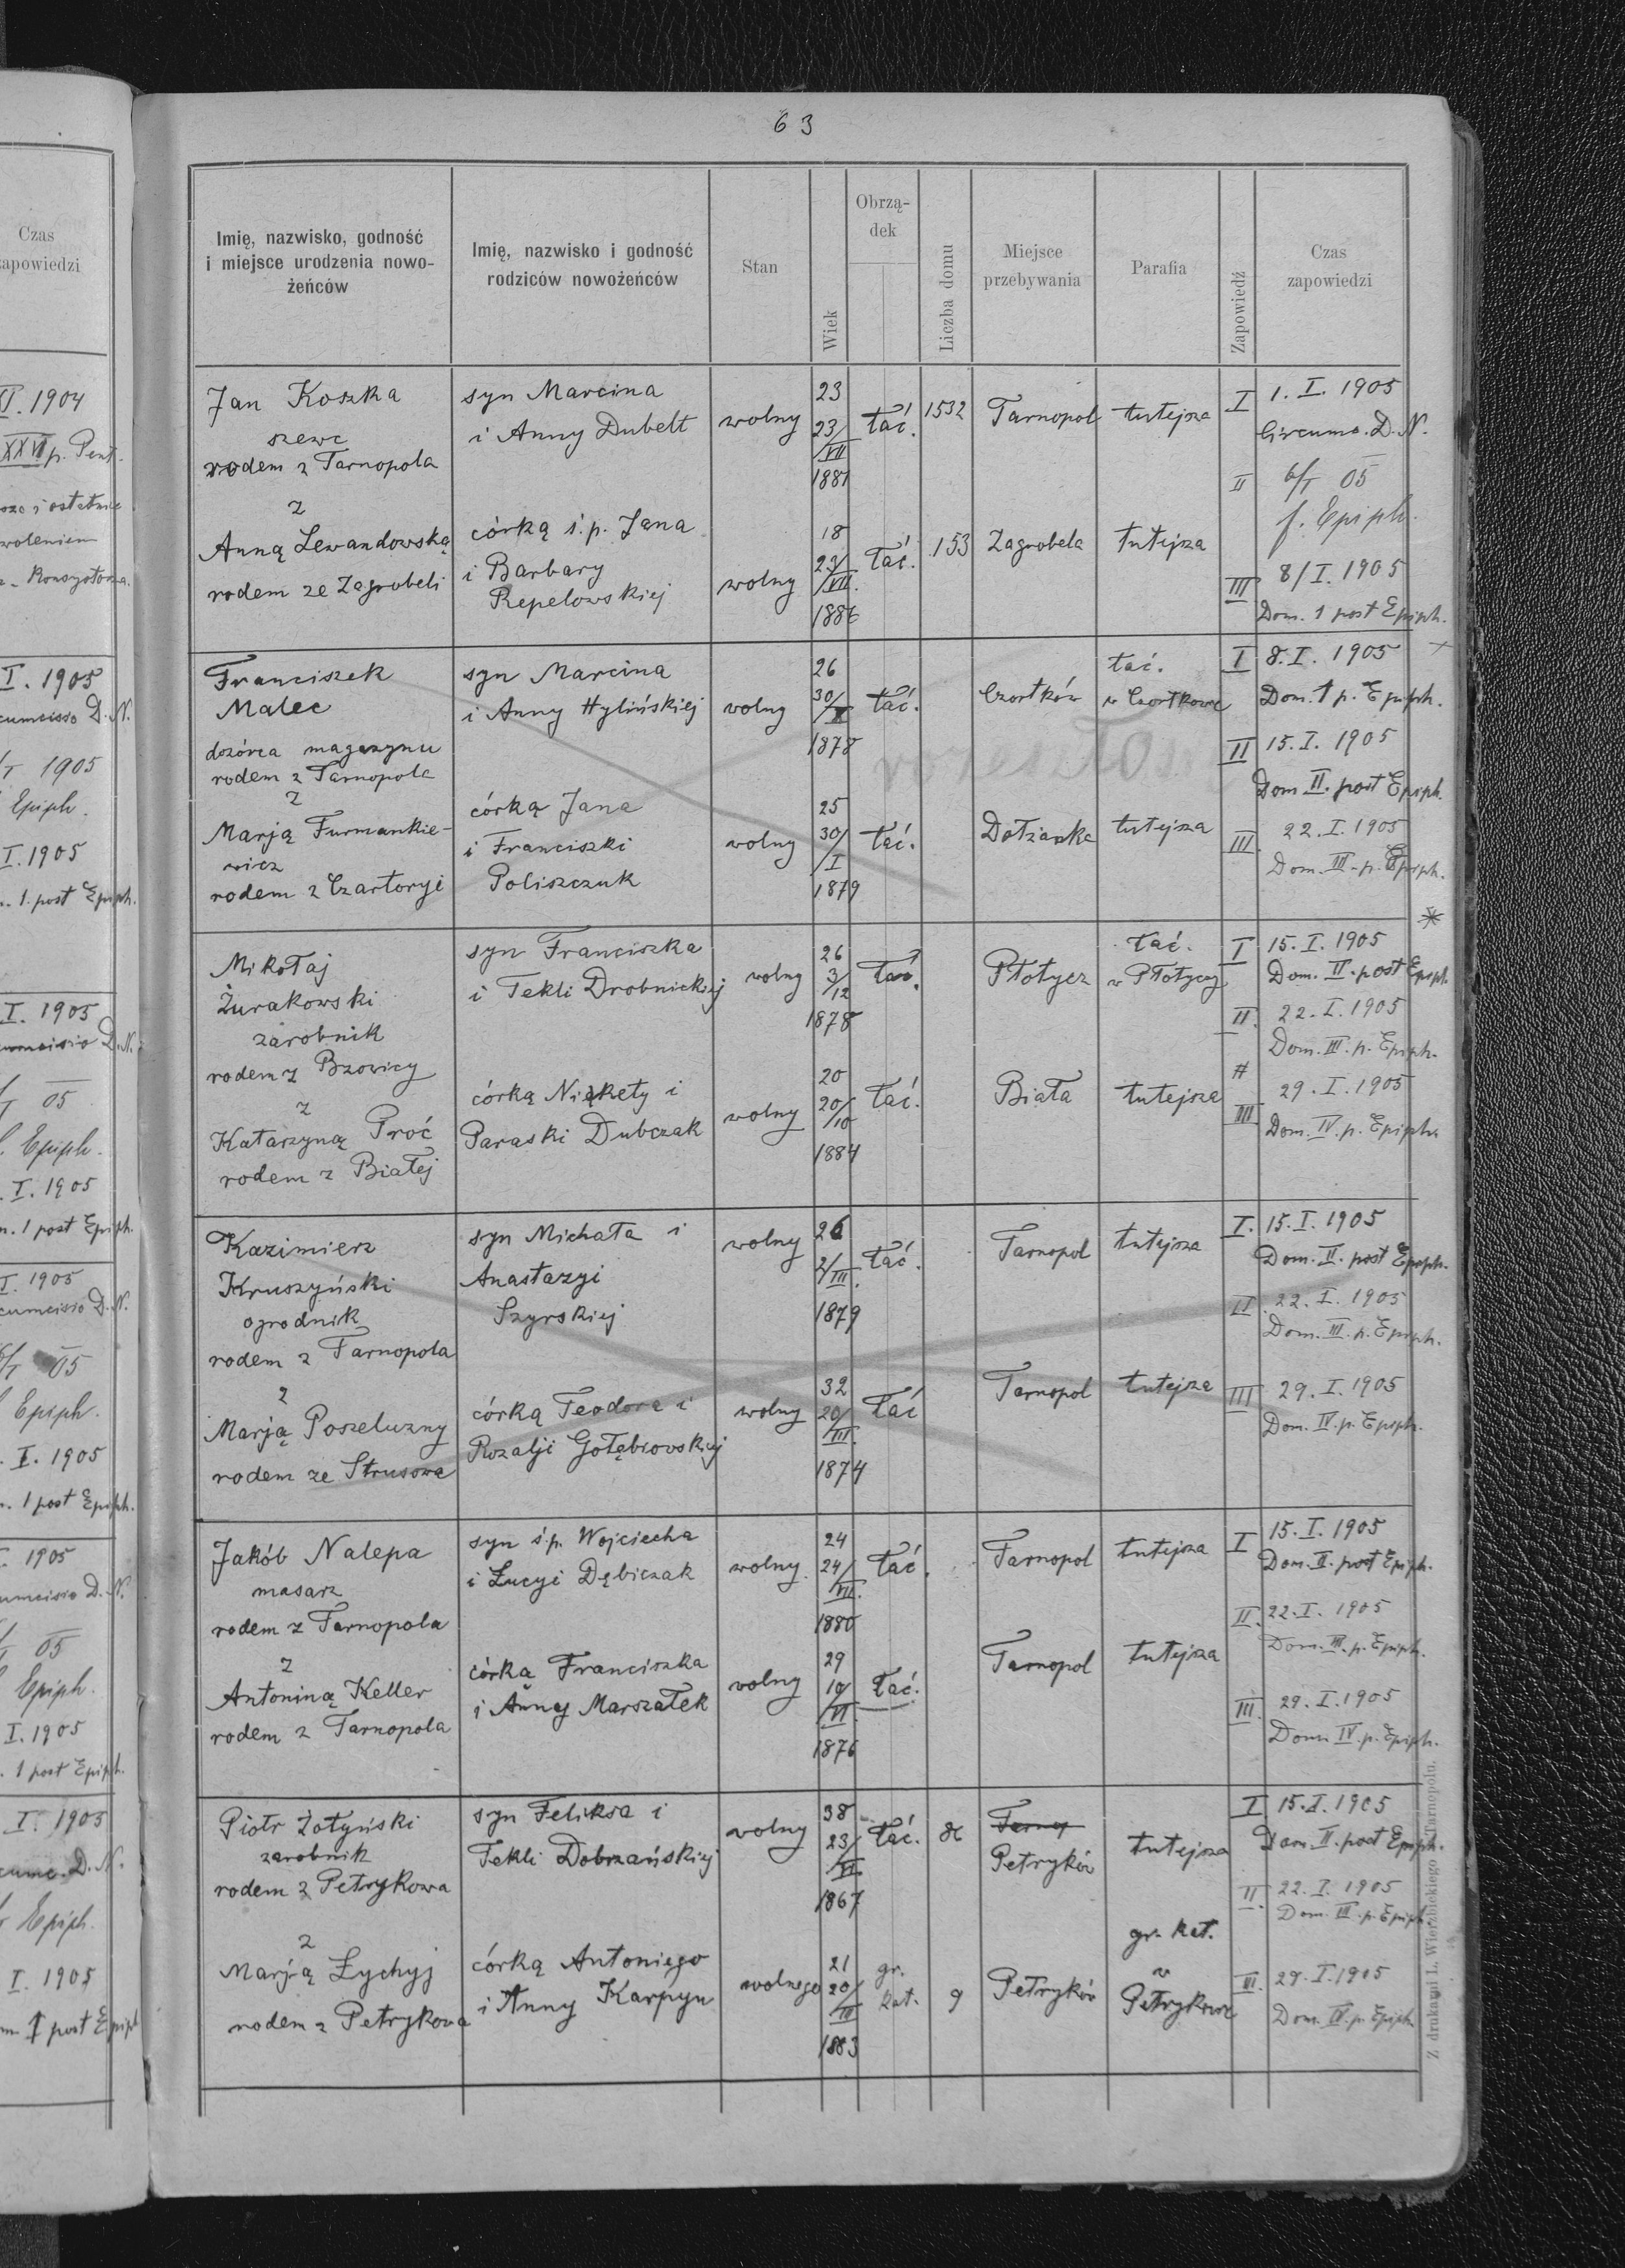 63
Imię, nazwisko, godność
i miejsce urodzenia nowo-
żeńców
Imię, nazwisko i godność
rodziców nowożeńców
Stan
Wiek
Obrzą-
dek
Liczba domu
Miejsce
przebywania
Parafia
Zapowiedź
Czas
zapowiedzi
Jan Koszka
szewc
rodem z Tarnopola
syn Marcina
i Anny Dubelt
wolny
23
23/VII
1881
łać.
1532
Tarnopol
tutejsza
I 1. I. 1905
Circumc. D. N.
II 6/I 05
f. Epiph.
z
Anną Lewandowską
rodem ze Zagrobeli
córką ś.p. Jana
i Barbary
Repelowskiej
wolny
18
23/VII.
1886
łać.
153
Zagrobela
tutejsza
III 8/I. 1905
Dom. 1 post Epiph.
Franciszek
Malec
dozórca magazynu
rodem z Tarnopola
syn Marcina
i Anny Hylińskiej
wolny
26
30/X
1878
łać.
Czortków
łać.
w Czortkowie
I 8. I. 1905
Dom. 1 p. Epiph.
II 15. I. 1905
Dom II. post Epiph.
z
Marją Furmankie-
wicz
rodem z Czartoryi
córką Jana
i Franciszki
Poliszczuk
wolny
25
30/I
1879
łać.
Dołżanka
tutejsza
III. 22. I. 1905
Dom. III. p. Epiph.
Mikołaj
Żurakowski
zarobnik
rodem z Bzowicy
syn Franciszka
i Tekli Drobnickiej
wolny
26
3/12
1878
łać.
Płotycz
łać.
w Płotyczy
I 15. I. 1905
Dom. II. post Epiph.
II. 22. I. 1905
Dom. III. p. Epiph.
z
Katarzyną Proć
rodem z Białej
córką Nikety i
Paraski Dubczak
wolny
20
20/10
1884
łać.
Biała
tutejsza
III 29. I. 1905
Dom. IV. p. Epiph.
Kazimierz
Kruszyński
ogrodnik
rodem z Tarnopola
syn Michała i
Anastazyi
Szyrskiej
wolny
26
2/III.
1879
łać.
Tarnopol
tutejsza
I. 15. I. 1905
Dom. II. post Epiph.
II. 22. I. 1905
Dom. III. p. Epiph.
z
Marją Poszeluzny
rodem ze Strusowa
córką Teodora i
Rozalji Gołębiowskiej
wolny
32
20/III.
1874
łać
Tarnopol
tutejsza
III 29. I. 1905
Dom. IV. p. Epiph.
Jakób Nalepa
masarz
rodem z Tarnopola
syn ś.p. Wojciecha
i Łucyi Dębiczak
wolny.
24
24/VII.
1880
łać.
Tarnopol
tutejsza
I 15. I. 1905
Dom. II. post Epiph.
II. 22. I. 1905
Dom. III. p. Epiph.
z
Antoniną Keller
rodem z Tarnopola
córką Franciszka
i Anny Marszałek
wolny
29
10/VI
1876
łać.
Tarnopol
tutejsza
III. 29. I. 1905
Dom. IV. p. Epiph.
Piotr Żołyński
zarobnik
rodem z Petrykowa
syn Feliksa i
Tekli Dobrzańskiej
wolny
38
23/VI.
1867
łać.
Petryków
tutejsza
I 15. I. 1905
Dom. II. post Epiph.
II. 22. I. 1905
Dom. III. p. Epiph.
z
Marją Łychyj
rodem z Petrykowa
córką Antoniego
i Anny Karpyn
wolnego
21
20/III
1883
gr.
kat.
9
Petryków
gr. kat.
w
Petrykowie
III. 29. I. 1905
Dom. IV. p. Epiph.
Z drukarni L. Wierzbickiego w Tarnopolu.